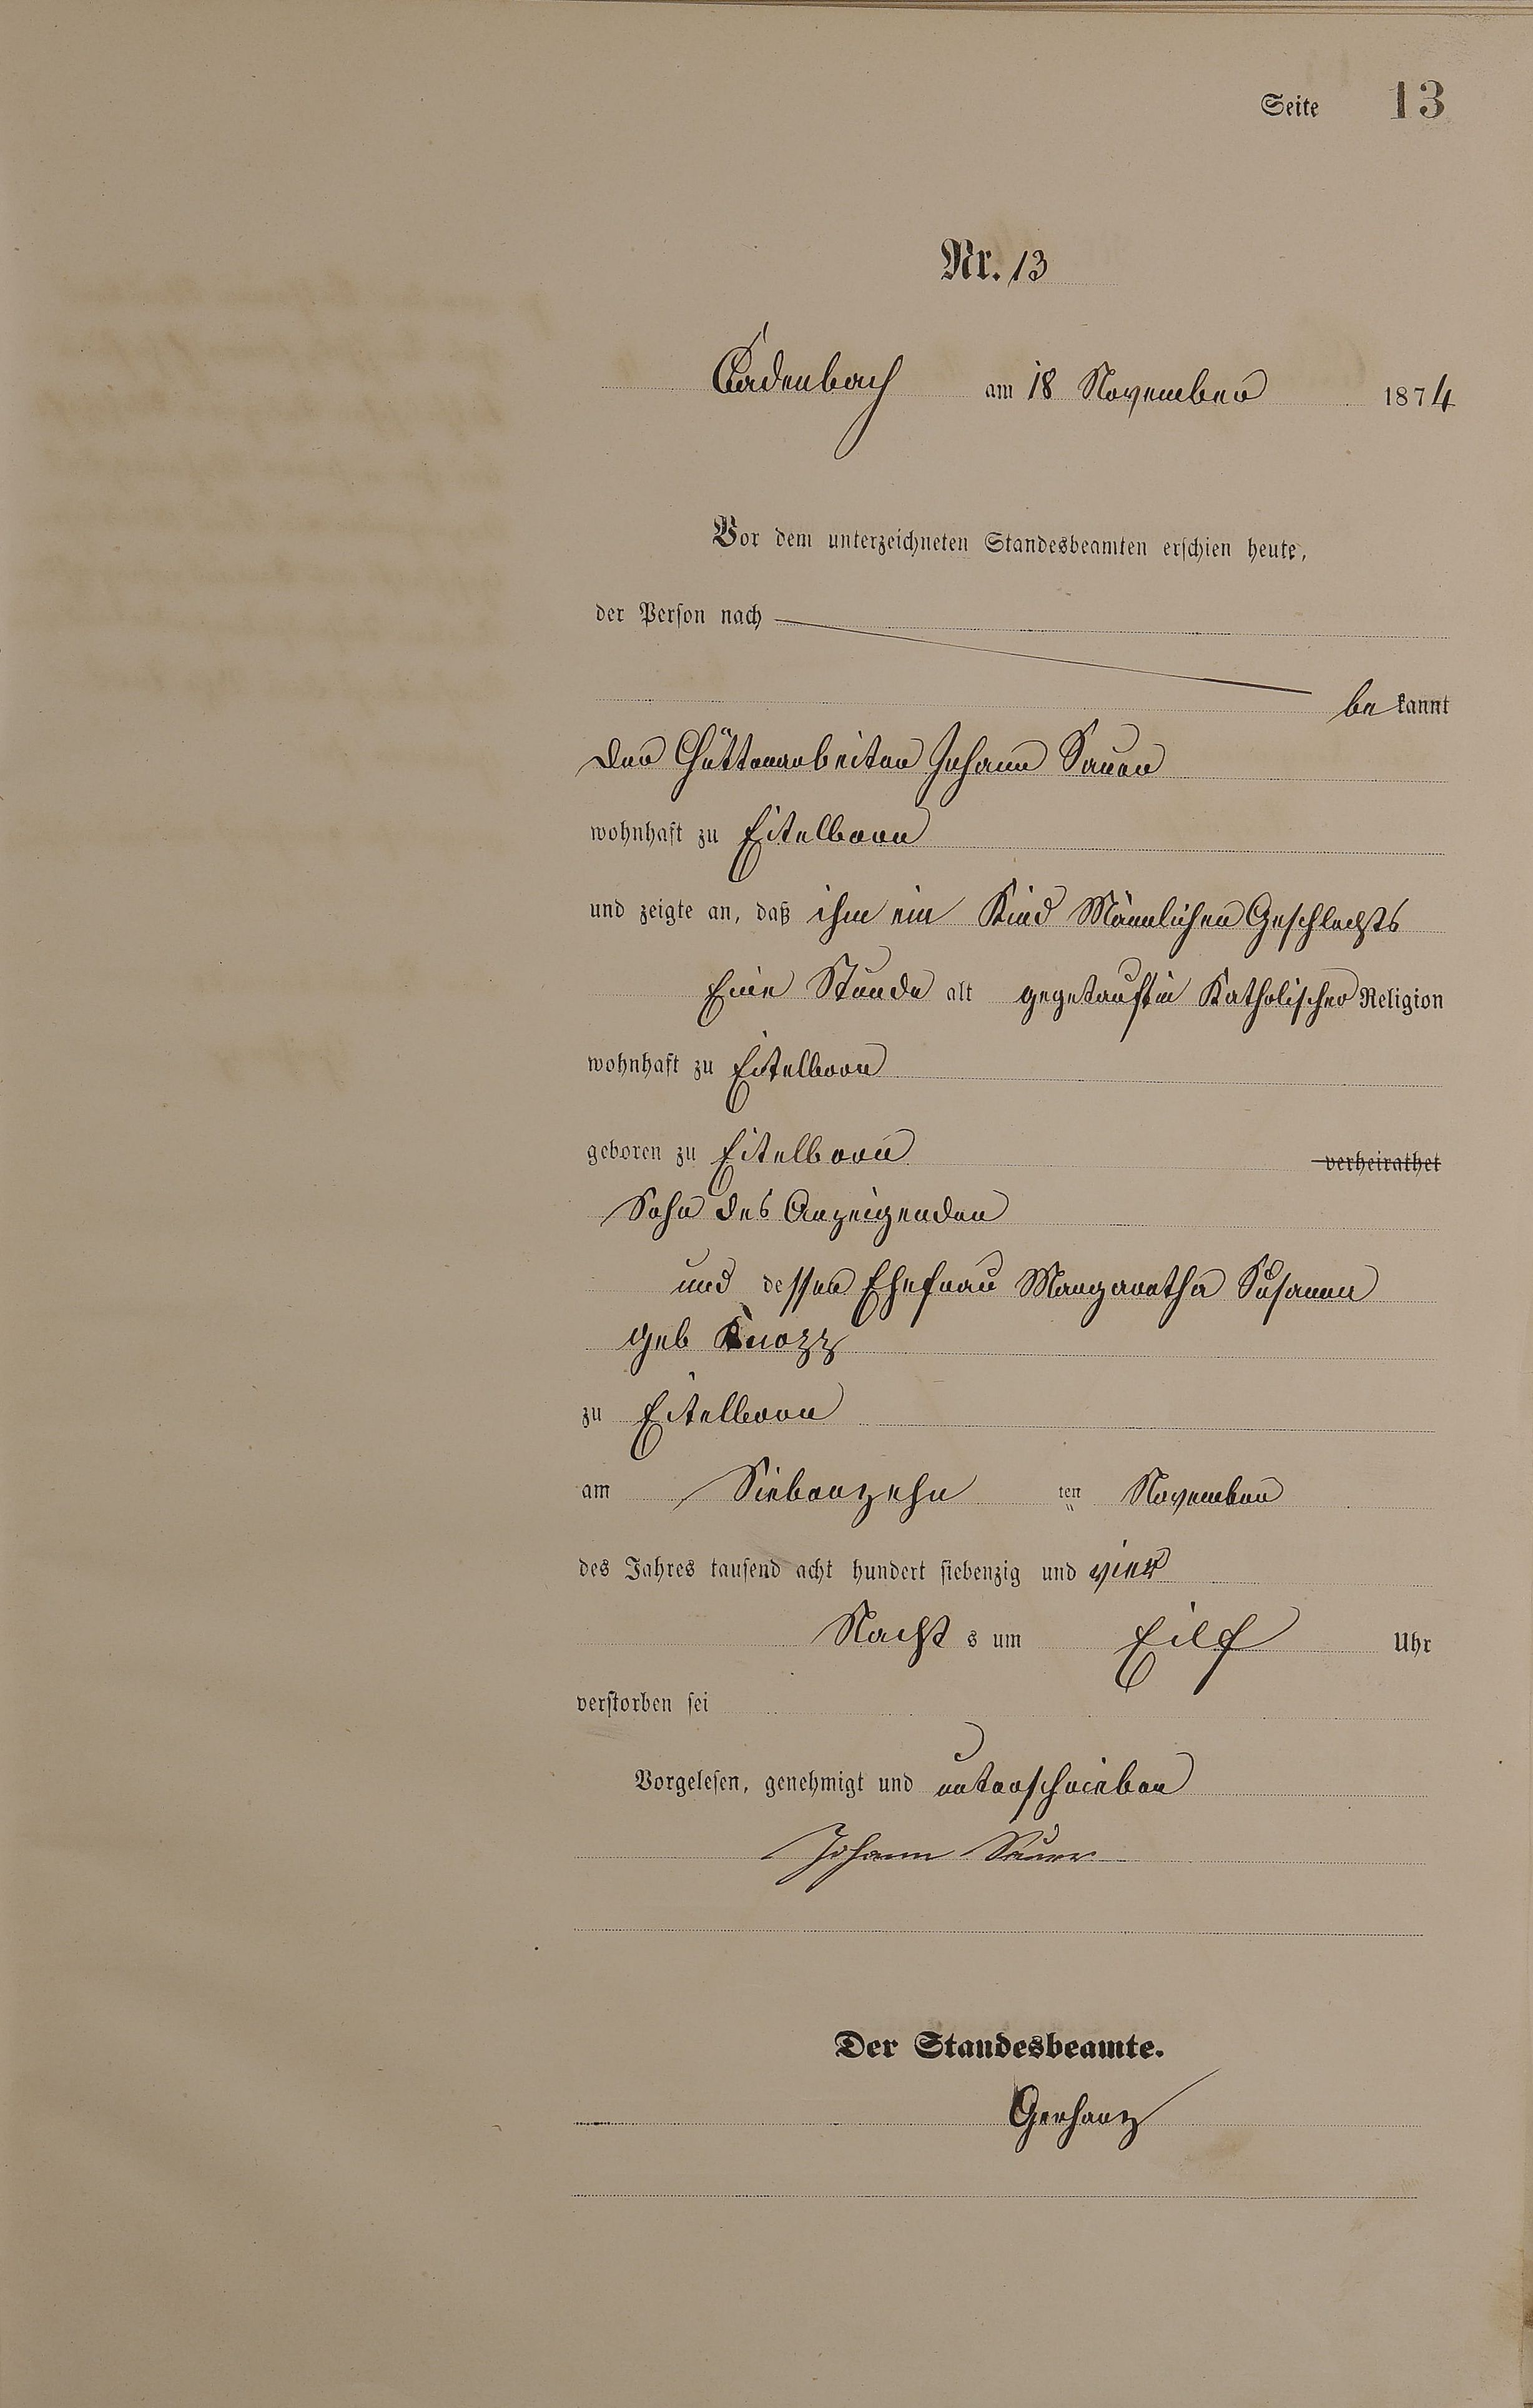 Seite 13
Nr. 13
Cadenbach am 18 November 1874
Vor dem unterzeichneten Standesbeamten erschien heute,
der Person nach
be kannt
der Hüttenarbeiter Johann Sauer
wohnhaft zu Eitelborn
und zeigte an, daß ihm ein Kind Männlichen Geschlechts
Eine Stunde alt gegetauft in Katholischer Religion
wohnhaft zu Eitelborn
geboren zu Eitelborn verheirathet
Sohn des Anzeigenden
und dessen Ehefrau Margaretha Susanna
geb Knozz
zu Eitelborn
am Siebenzehn ten November
des Jahres tausend acht hundert siebenzig und vier
Nacht s um Eilf Uhr
verstorben sei
Vorgelesen, genehmigt und unterschrieben
Johann Sauer
Der Standesbeamte.
Gerhanz